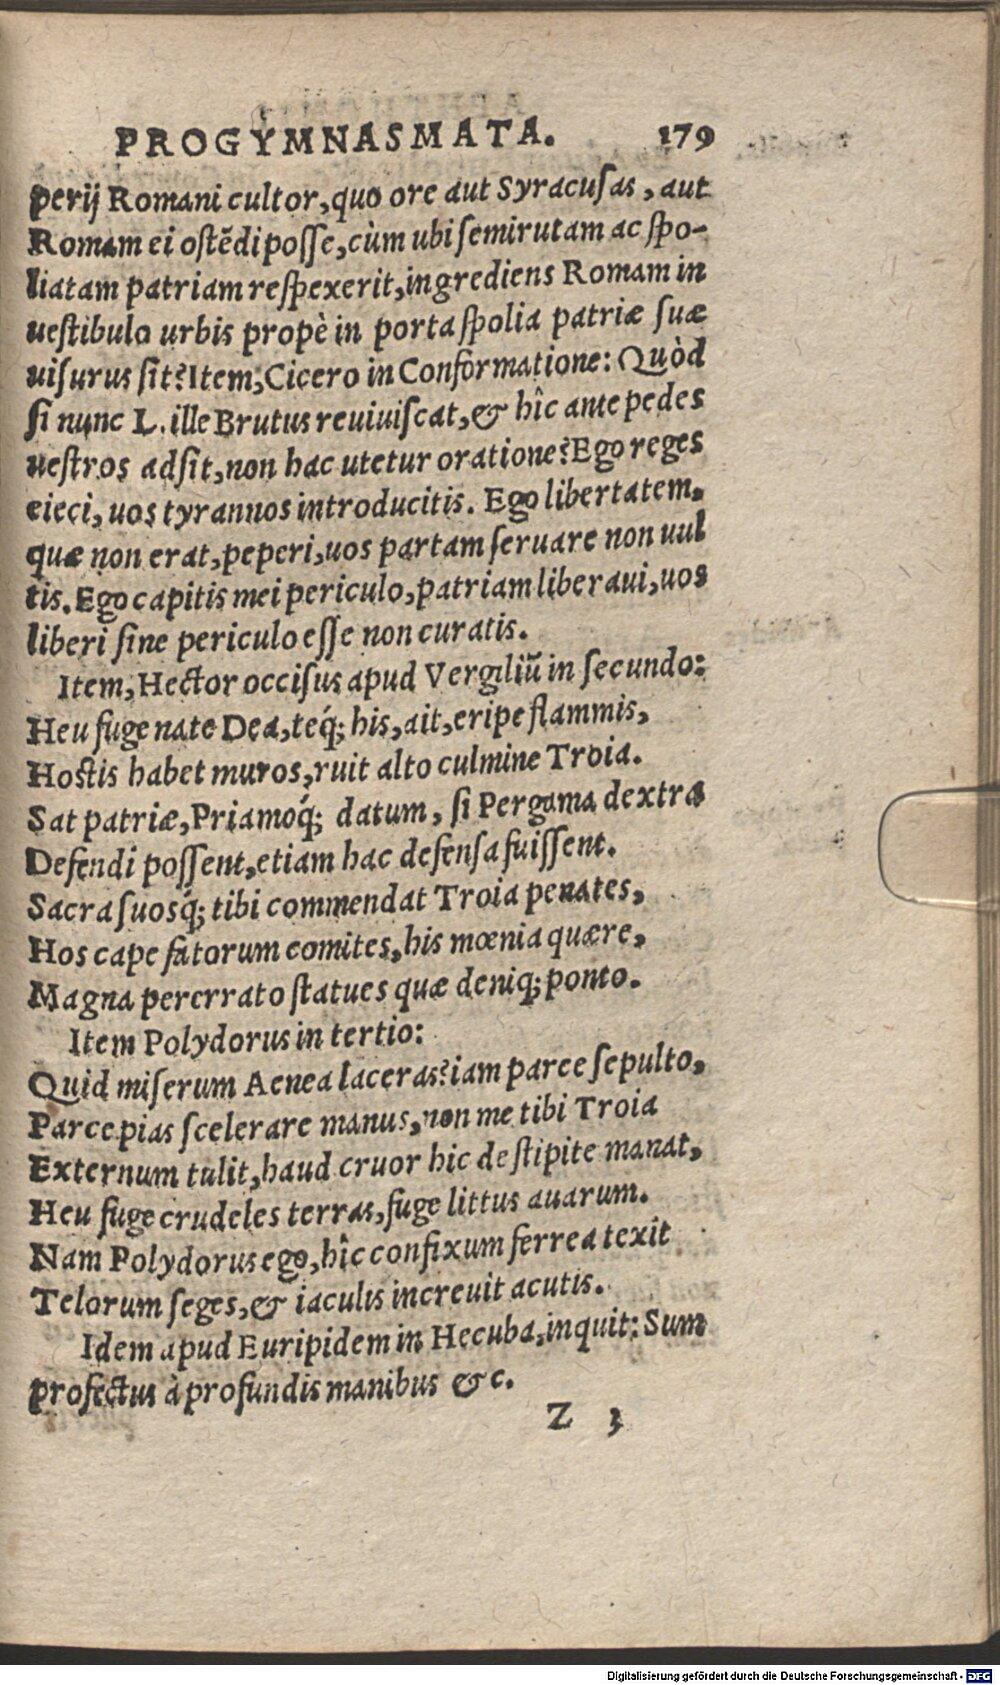 PROGYMNASMATA. 179
perij Romani cultor, quo ore aut Syracusas, aut
Romam ei ostẽdi posse, cùm ubi semirutam ac spo-
liatam patriam respexerit, ingrediens Romam in
uestibulo urbis propè in porta spolia patriæ suæ
uisurus sit? Item, Cicero in Conformatione: Quòd
si nunc L. ille Brutus reuiuiscat, & hîc ante pedes
uestros adsit, non hac utetur oratione? Ego reges
eieci, uos tyrannos introducitis. Ego libertatem,
quæ non erat, peperi, uos partam seruare non uul
tis. Ego capitis mei periculo, patriam liberaui, uos
liberi sine periculo esse non curatis.
Item, Hector occisus apud Vergiliũ in secundo:
Heu fuge nate Dea, teq́; his, ait, eripe flammis,
Hostis habet muros, ruit alto culmine Troia.
Sat patriæ, Priamoq́; datum, si Pergama dextra
Defendi possent, etiam hac defensa fuissent.
Sacra suosq́; tibi commendat Troia penates,
Hos cape fatorum comites, his mœnia quære,
Magna pererrato statues quæ deniq; ponto.
Item Polydorus in tertio:
Quid miserum Aenea laceras? iam parce sepulto,
Parce pias scelerare manus, non me tibi Troia
Externum tulit, haud cruor hic de stipite manat,
Heu fuge crudeles terras, fuge littus auarum.
Nam Polydorus ego, hîc confixum ferrea texit
Telorum seges, & iaculis increuit acutis.
Idem apud Euripidem in Hecuba, inquit: Sum
profectus à profundis manibus &c.
Z 3
Digitalisierung gefördert durch die Deutsche Forschungsgemeinschaft - DFG